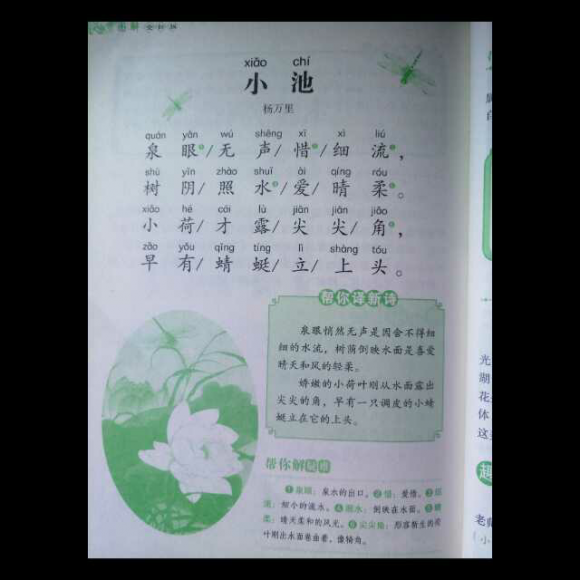 xiǎo chí
小 池
杨万里
quán yǎn wú shēng xī xì liú
泉眼/无声惜/细流，
shù yīn zhào shuǐ ài qíng róu
树阴/照水/爱/晴柔。
xiǎo hé cái lù jiān jiān jiǎo
小荷/才露/尖尖/角，
zǎo yǒu qīng tíng lì shàng tóu
早有/蜻蜓/立/上头。
帮你译新诗
泉眼悄然无声是因舍不得细
细的水流，树荫倒映水面是喜爱
晴天和风的轻柔。
娇嫩的小荷叶刚从水面露出
尖尖的角，早有一只调皮的小蜻
蜓立在它的上头。
帮你解疑难
①泉眼：泉水的出口。②惜：爱惜。③细
流：细小的流水。④照水：倒映在水面。⑤晴
柔：晴天柔和的风光。⑥尖尖角：形容新生的荷
叶刚出水面卷曲着，像犄角。
光
湖
花
体
这
趣
老师
（小